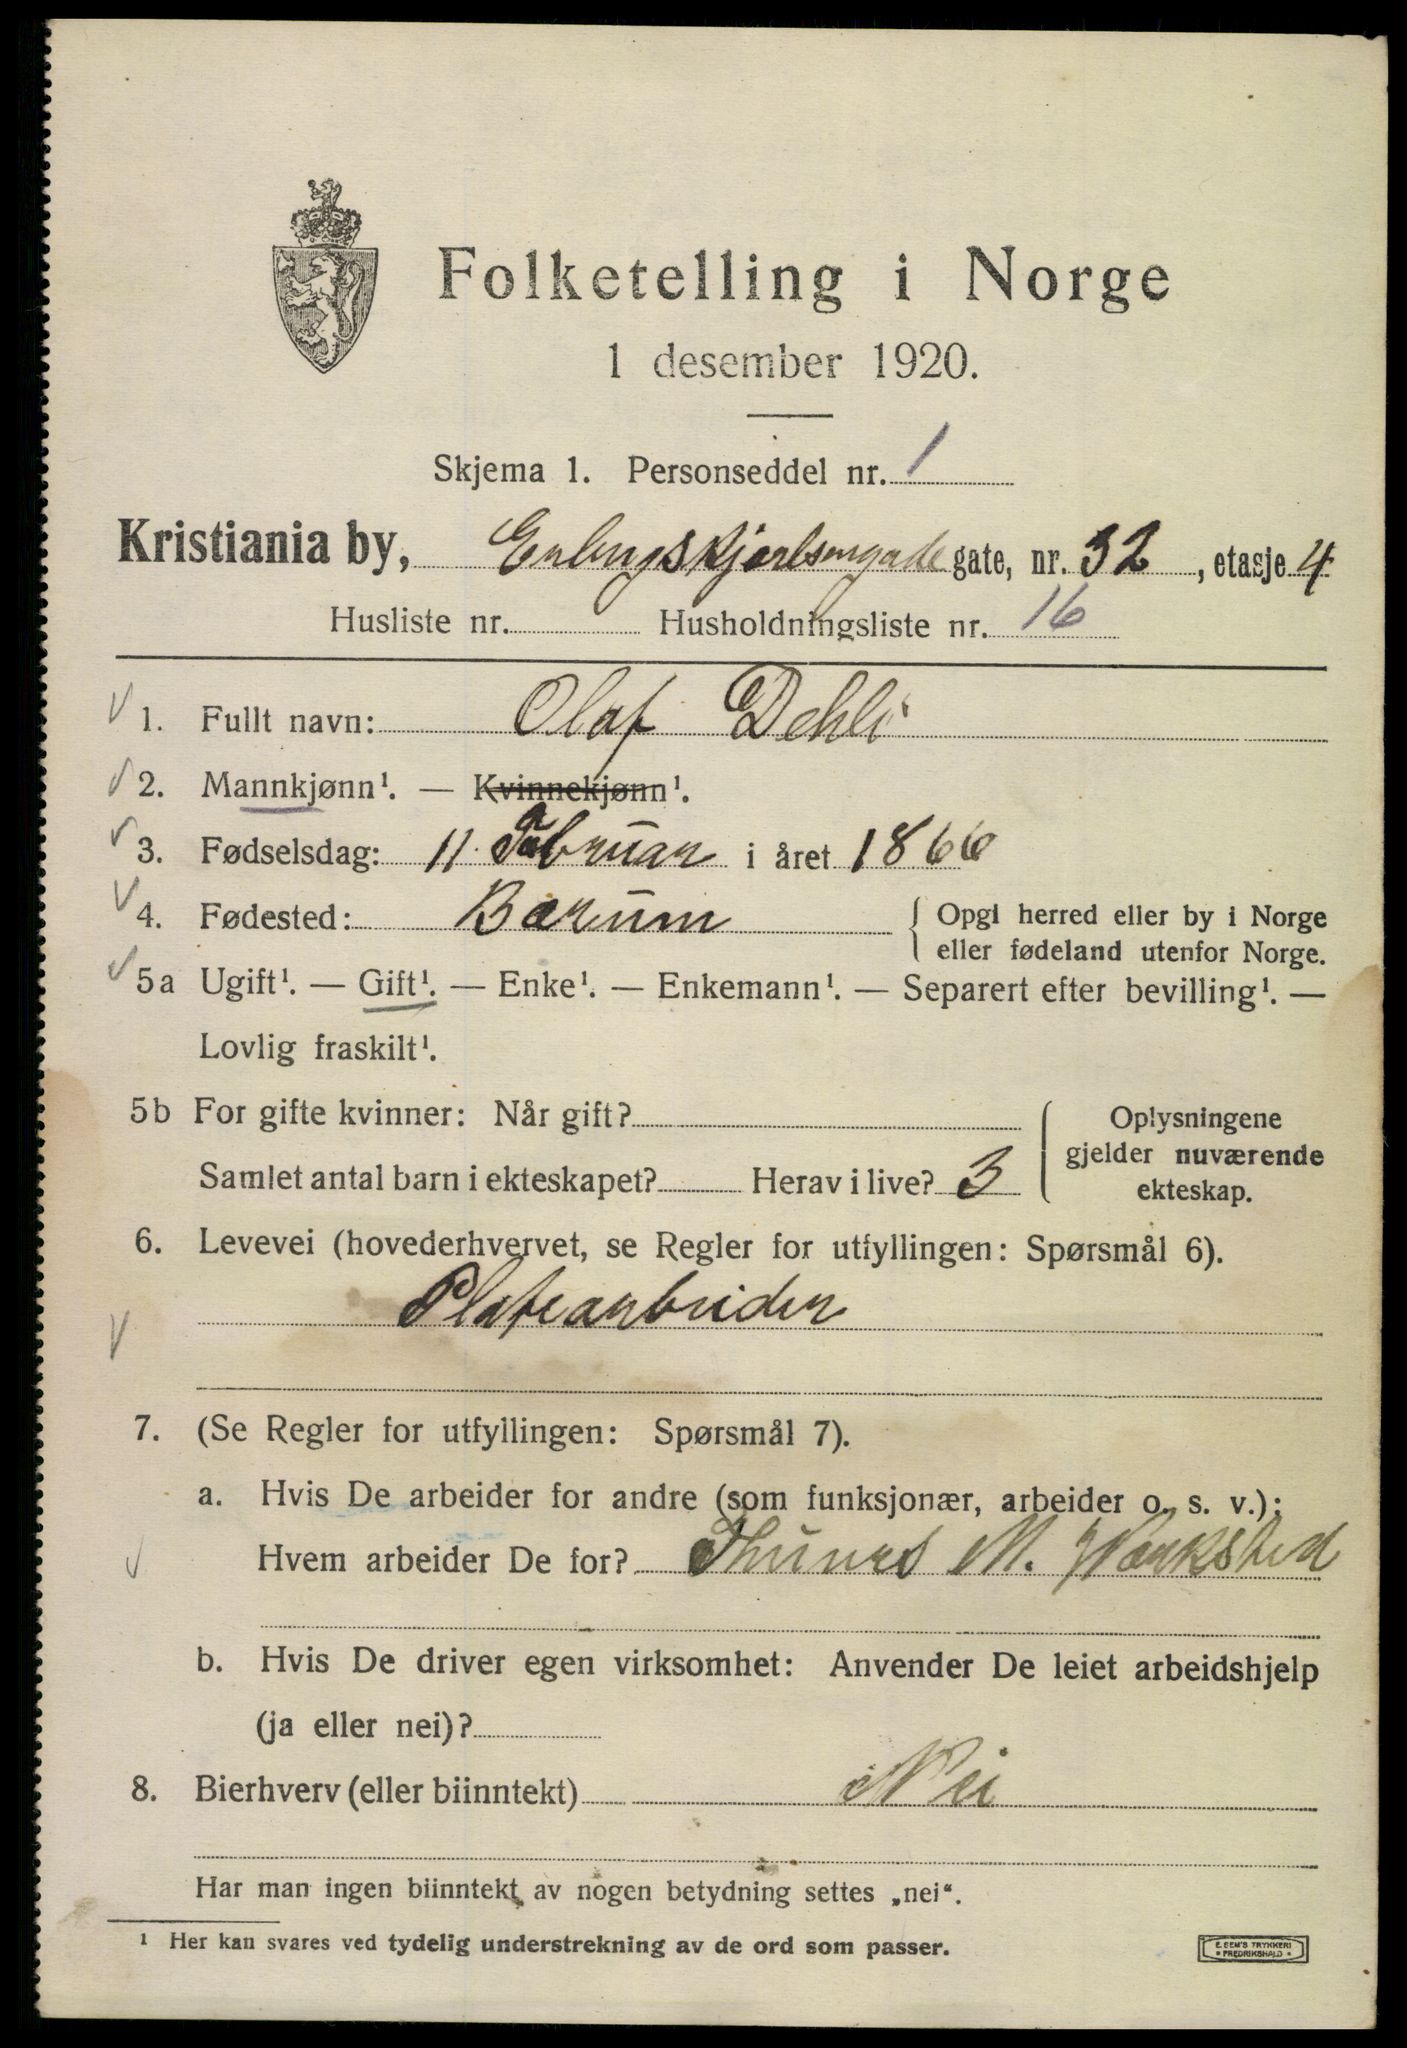 Folketelling i Norge
1 desember 1920.
Skjema 1. Personseddel nr. 1
Kristiania by, gate, nr. 32, etasje 4
Husliste nr. Husholdningsliste nr. 16
1. Fullt navn: Olaf Dehli
2. Mannkjønn¹. — Kvinnekjønn¹.
3. Fødselsdag: 11. Februar i året 1866
4. Fødested: Bærum { Opgi herred eller by i Norge
eller fødeland utenfor Norge.
5a Ugift¹. — Gift¹. — Enke¹. — Enkemann¹. — Separert efter bevilling¹. —
Lovlig fraskilt¹.
5b For gifte kvinner: Når gift? { Oplysningene
gjelder nuværende
Samlet antal barn i ekteskapet? Herav i live? 3
ekteskap.
6. Levevei (hovederhvervet, se Regler for utfyllingen: Spørsmål 6).
Platearbeider
7. (Se Regler for utfyllingen: Spørsmål 7).
a. Hvis De arbeider for andre (som funksjonær, arbeider o. s. v.):
Hvem arbeider De for? Thunes M. Værksted
b. Hvis De driver egen virksomhet: Anvender De leiet arbeidshjelp
(ja eller nei)?
8. Bierhverv (eller biinntekt) Nei
Har man ingen biinntekt av nogen betydning settes „nei“.
¹ Her kan svares ved tydelig understrekning av de ord som passer.
E. SEM'S TRYKKERI
FREDRIKSHALD